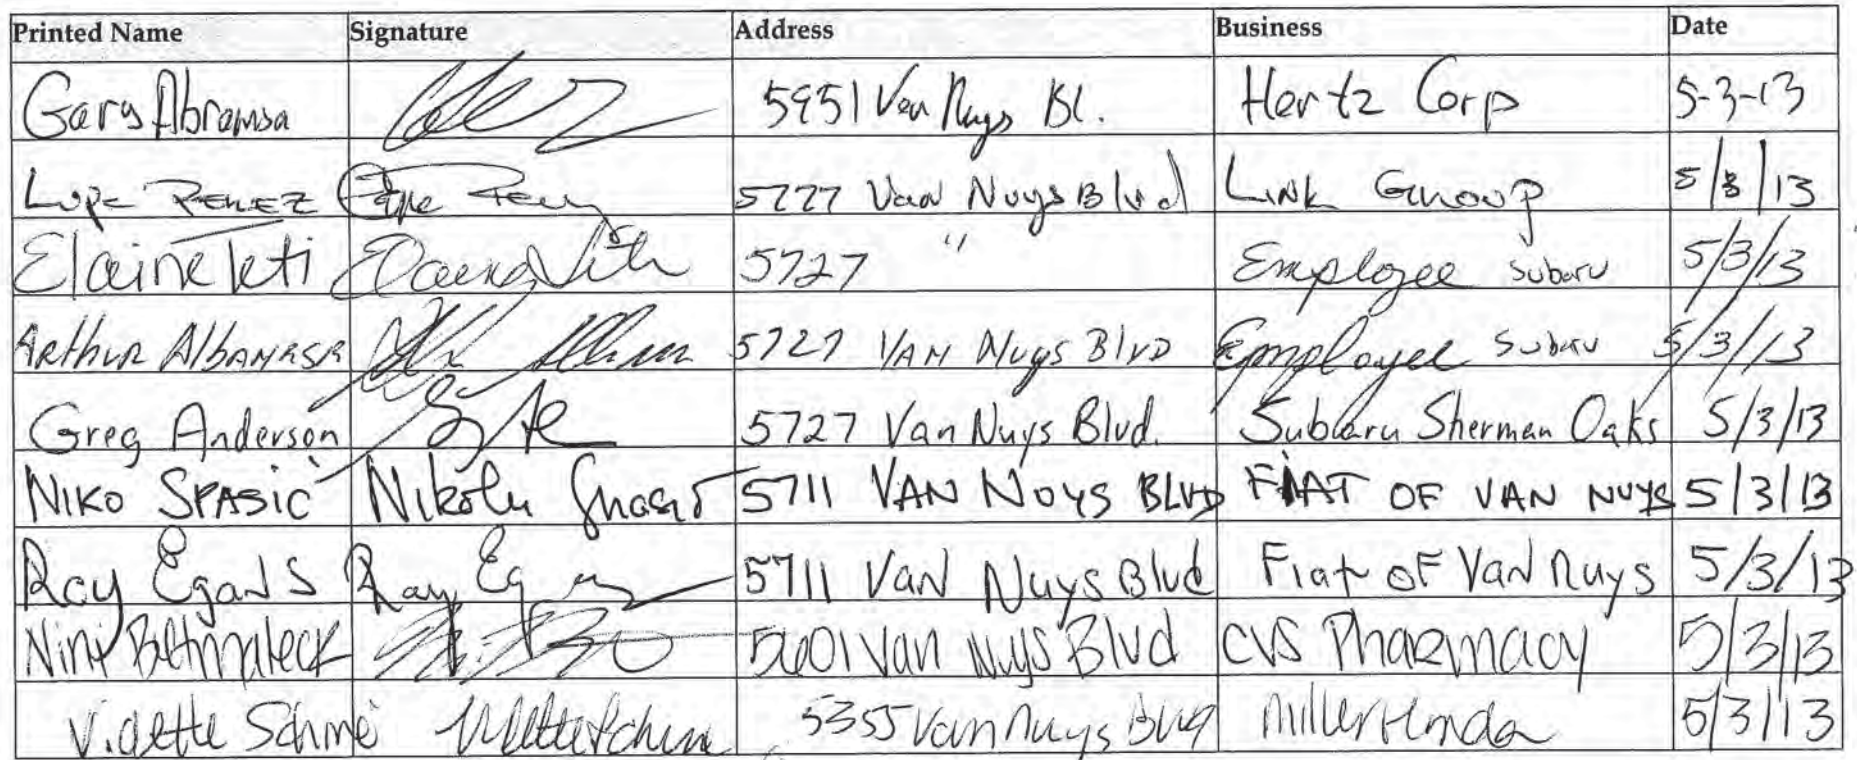 Printed Name Signature Address Business Date
Gary 5951 Van Nuys Bl. Hertz Corp 5-3-13
Lupe Perez Lupe Perez 5777 Van Nuys Blvd Link Group 5/3/13
Elaine 5727 " Employee Subaru 5/3/13
Arthur 5727 VAN Nuys Blvd Employee Subaru 5/3/13
Greg Anderson 5727 Van Nuys Blvd. Subaru Sherman Oaks 5/3/13
NIKO SPASIĆ Nikola 5711 VAN NUYS BLVD FIAT OF VAN NUYS 5/3/13
Ray Egans Ray 5711 Van Nuys Blvd Fiat OF Van Nuys 5/3/13
5601 Van Nuys Blvd CVS Pharmacy 5/3/13
5355 Van Nuys Blvd Miller Honda 5/3/13